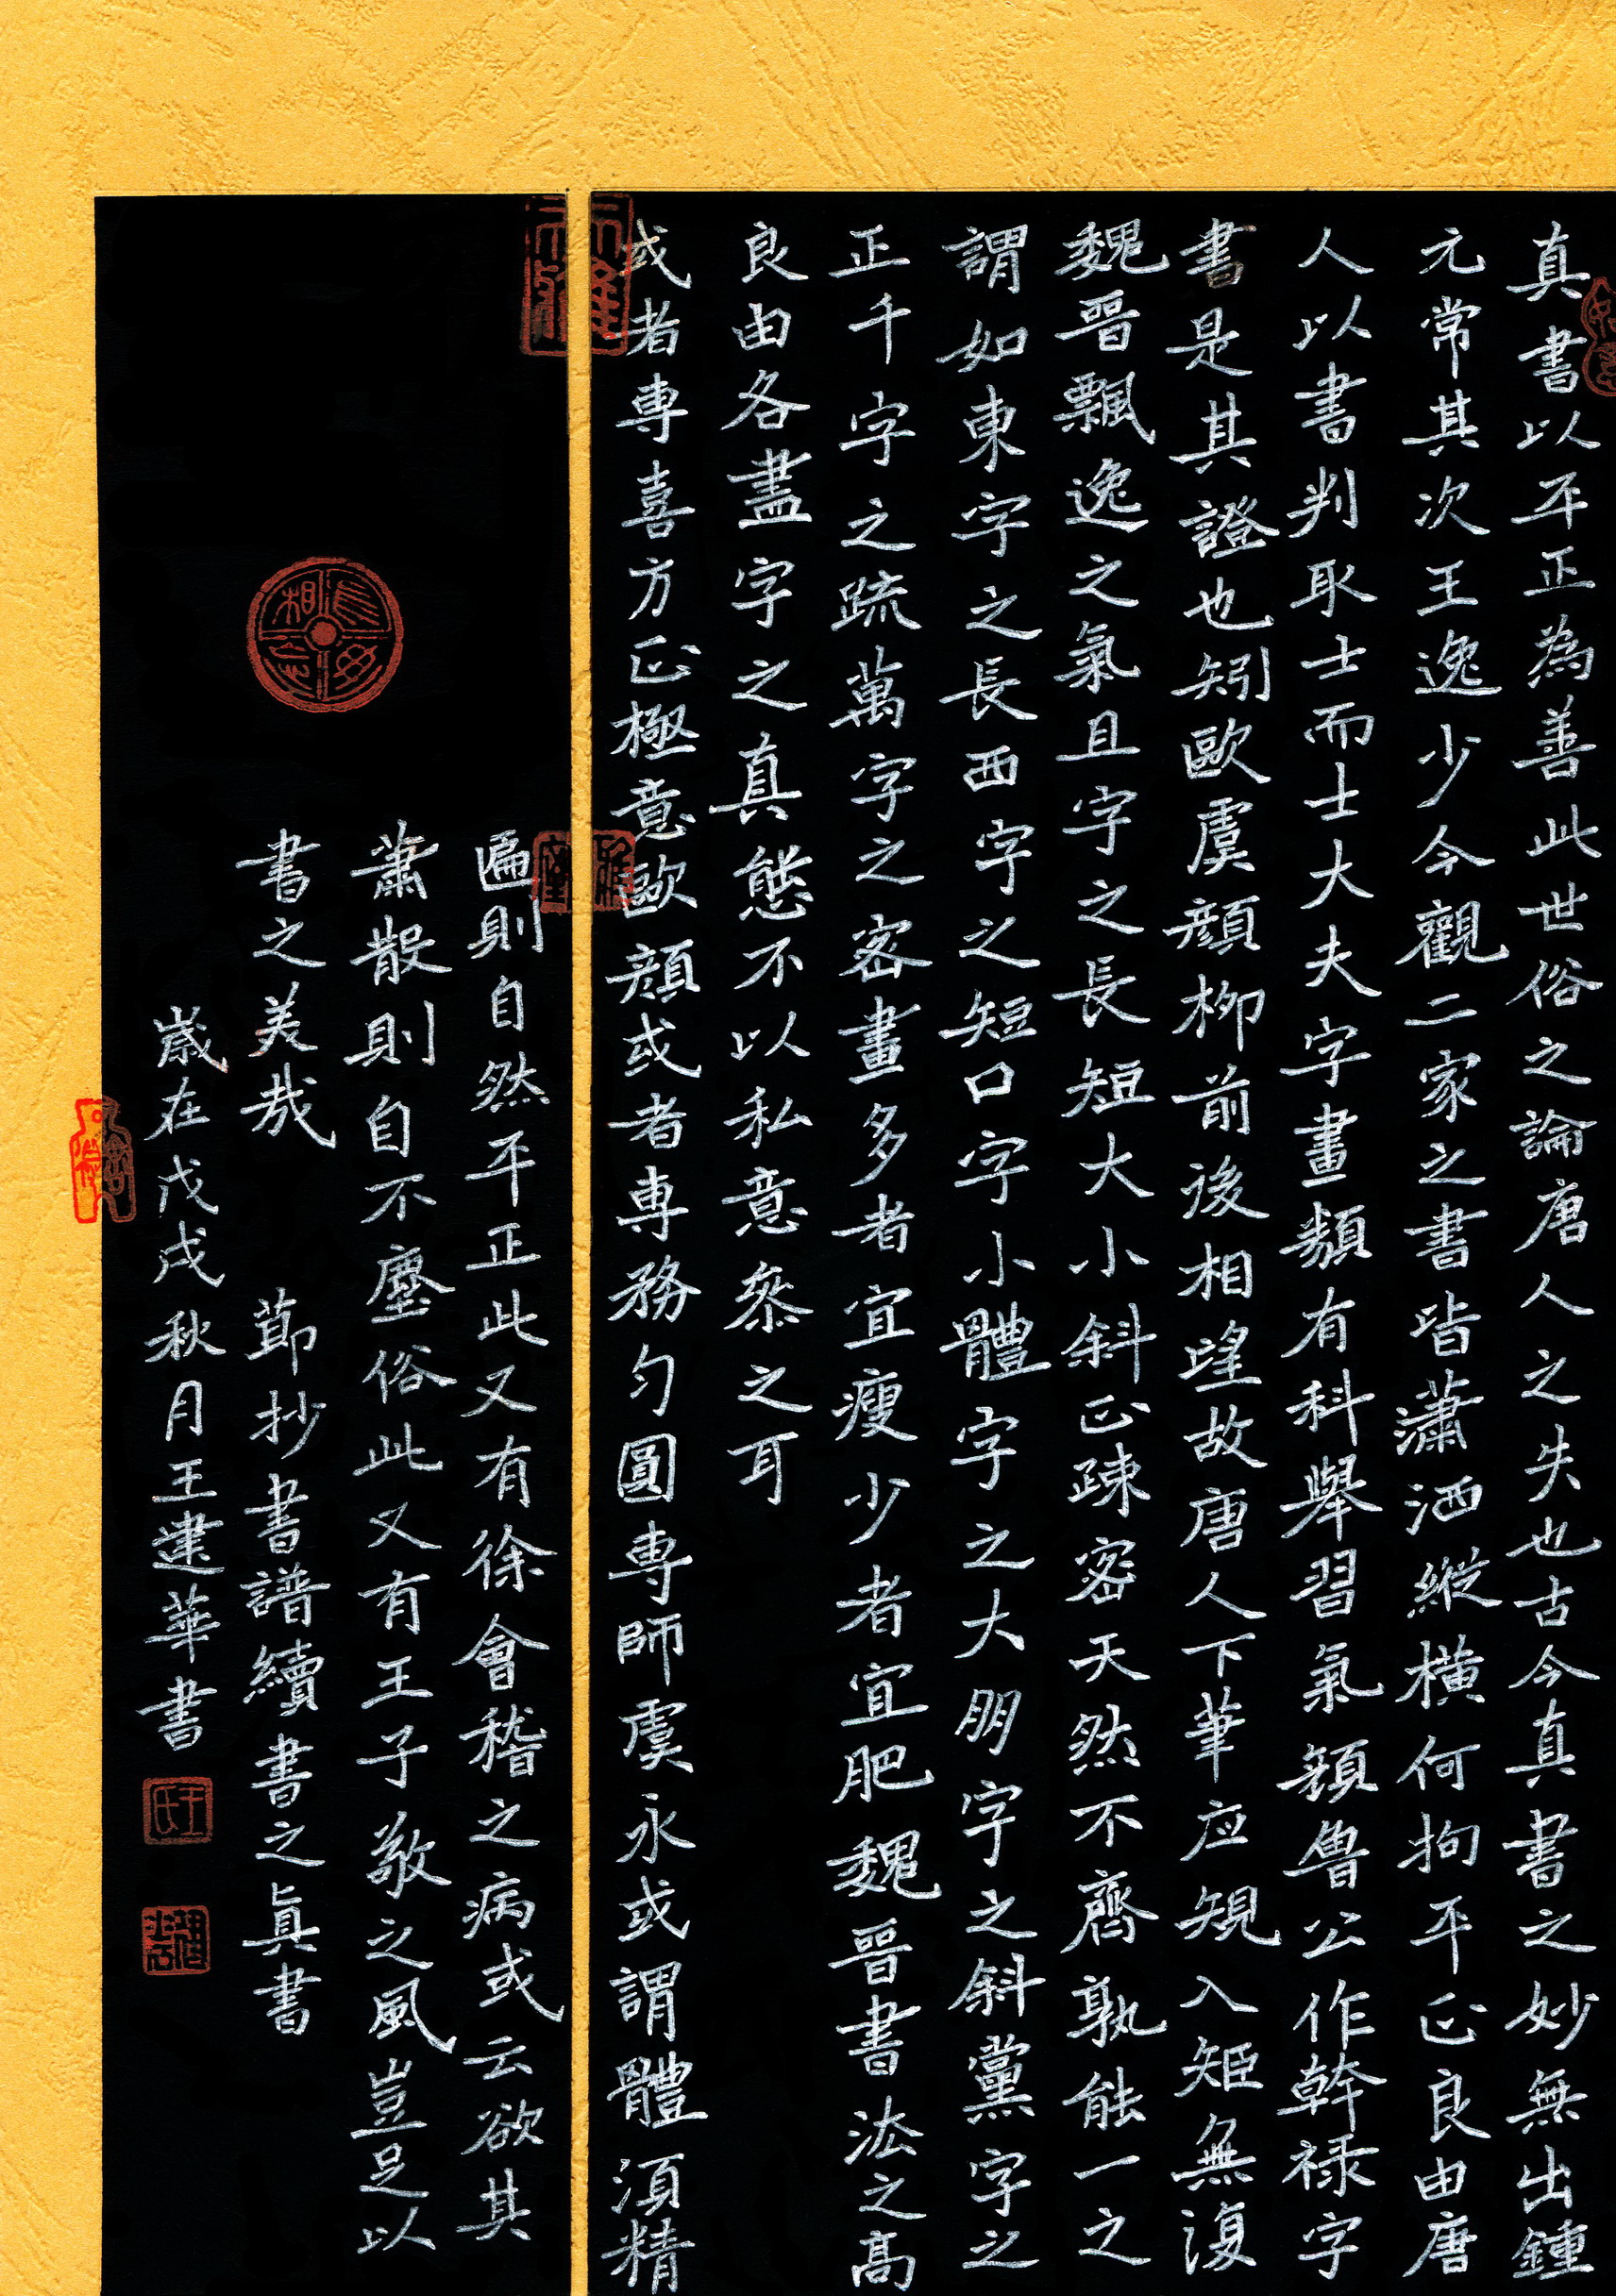 真書以平正為善此世俗之論唐人之失也古今真書之妙無出鍾
元常其次王逸少今觀二家之書皆瀟洒縱橫何拘平正良由唐
人以書判取士而士大夫字畫類有科舉習氣顏魯公作幹祿字
書是其證也矧歐虞顏柳前後相望故唐人下筆应規入矩無復
魏晉飄逸之氣且字之長短大小斜正疎密天然不齊孰能一之
謂如東字之長西字之短口字之小體字之大朋字之斜黨字之
正千字之疏萬字之密畫多者宜瘦少者宜肥魏晉書法之高
良由各盡字之真態不以私意參之耳
或者専喜方正極意歐顏或者専務勻圓専師虞永或謂體須精
匾則自然平正此又有徐會稽之病或云欲其
蕭散則自不塵俗此又有王子敬之風豈足以
書之美哉 節抄書譜續書之真書
歲在戊戌秋月王建華書
王氏